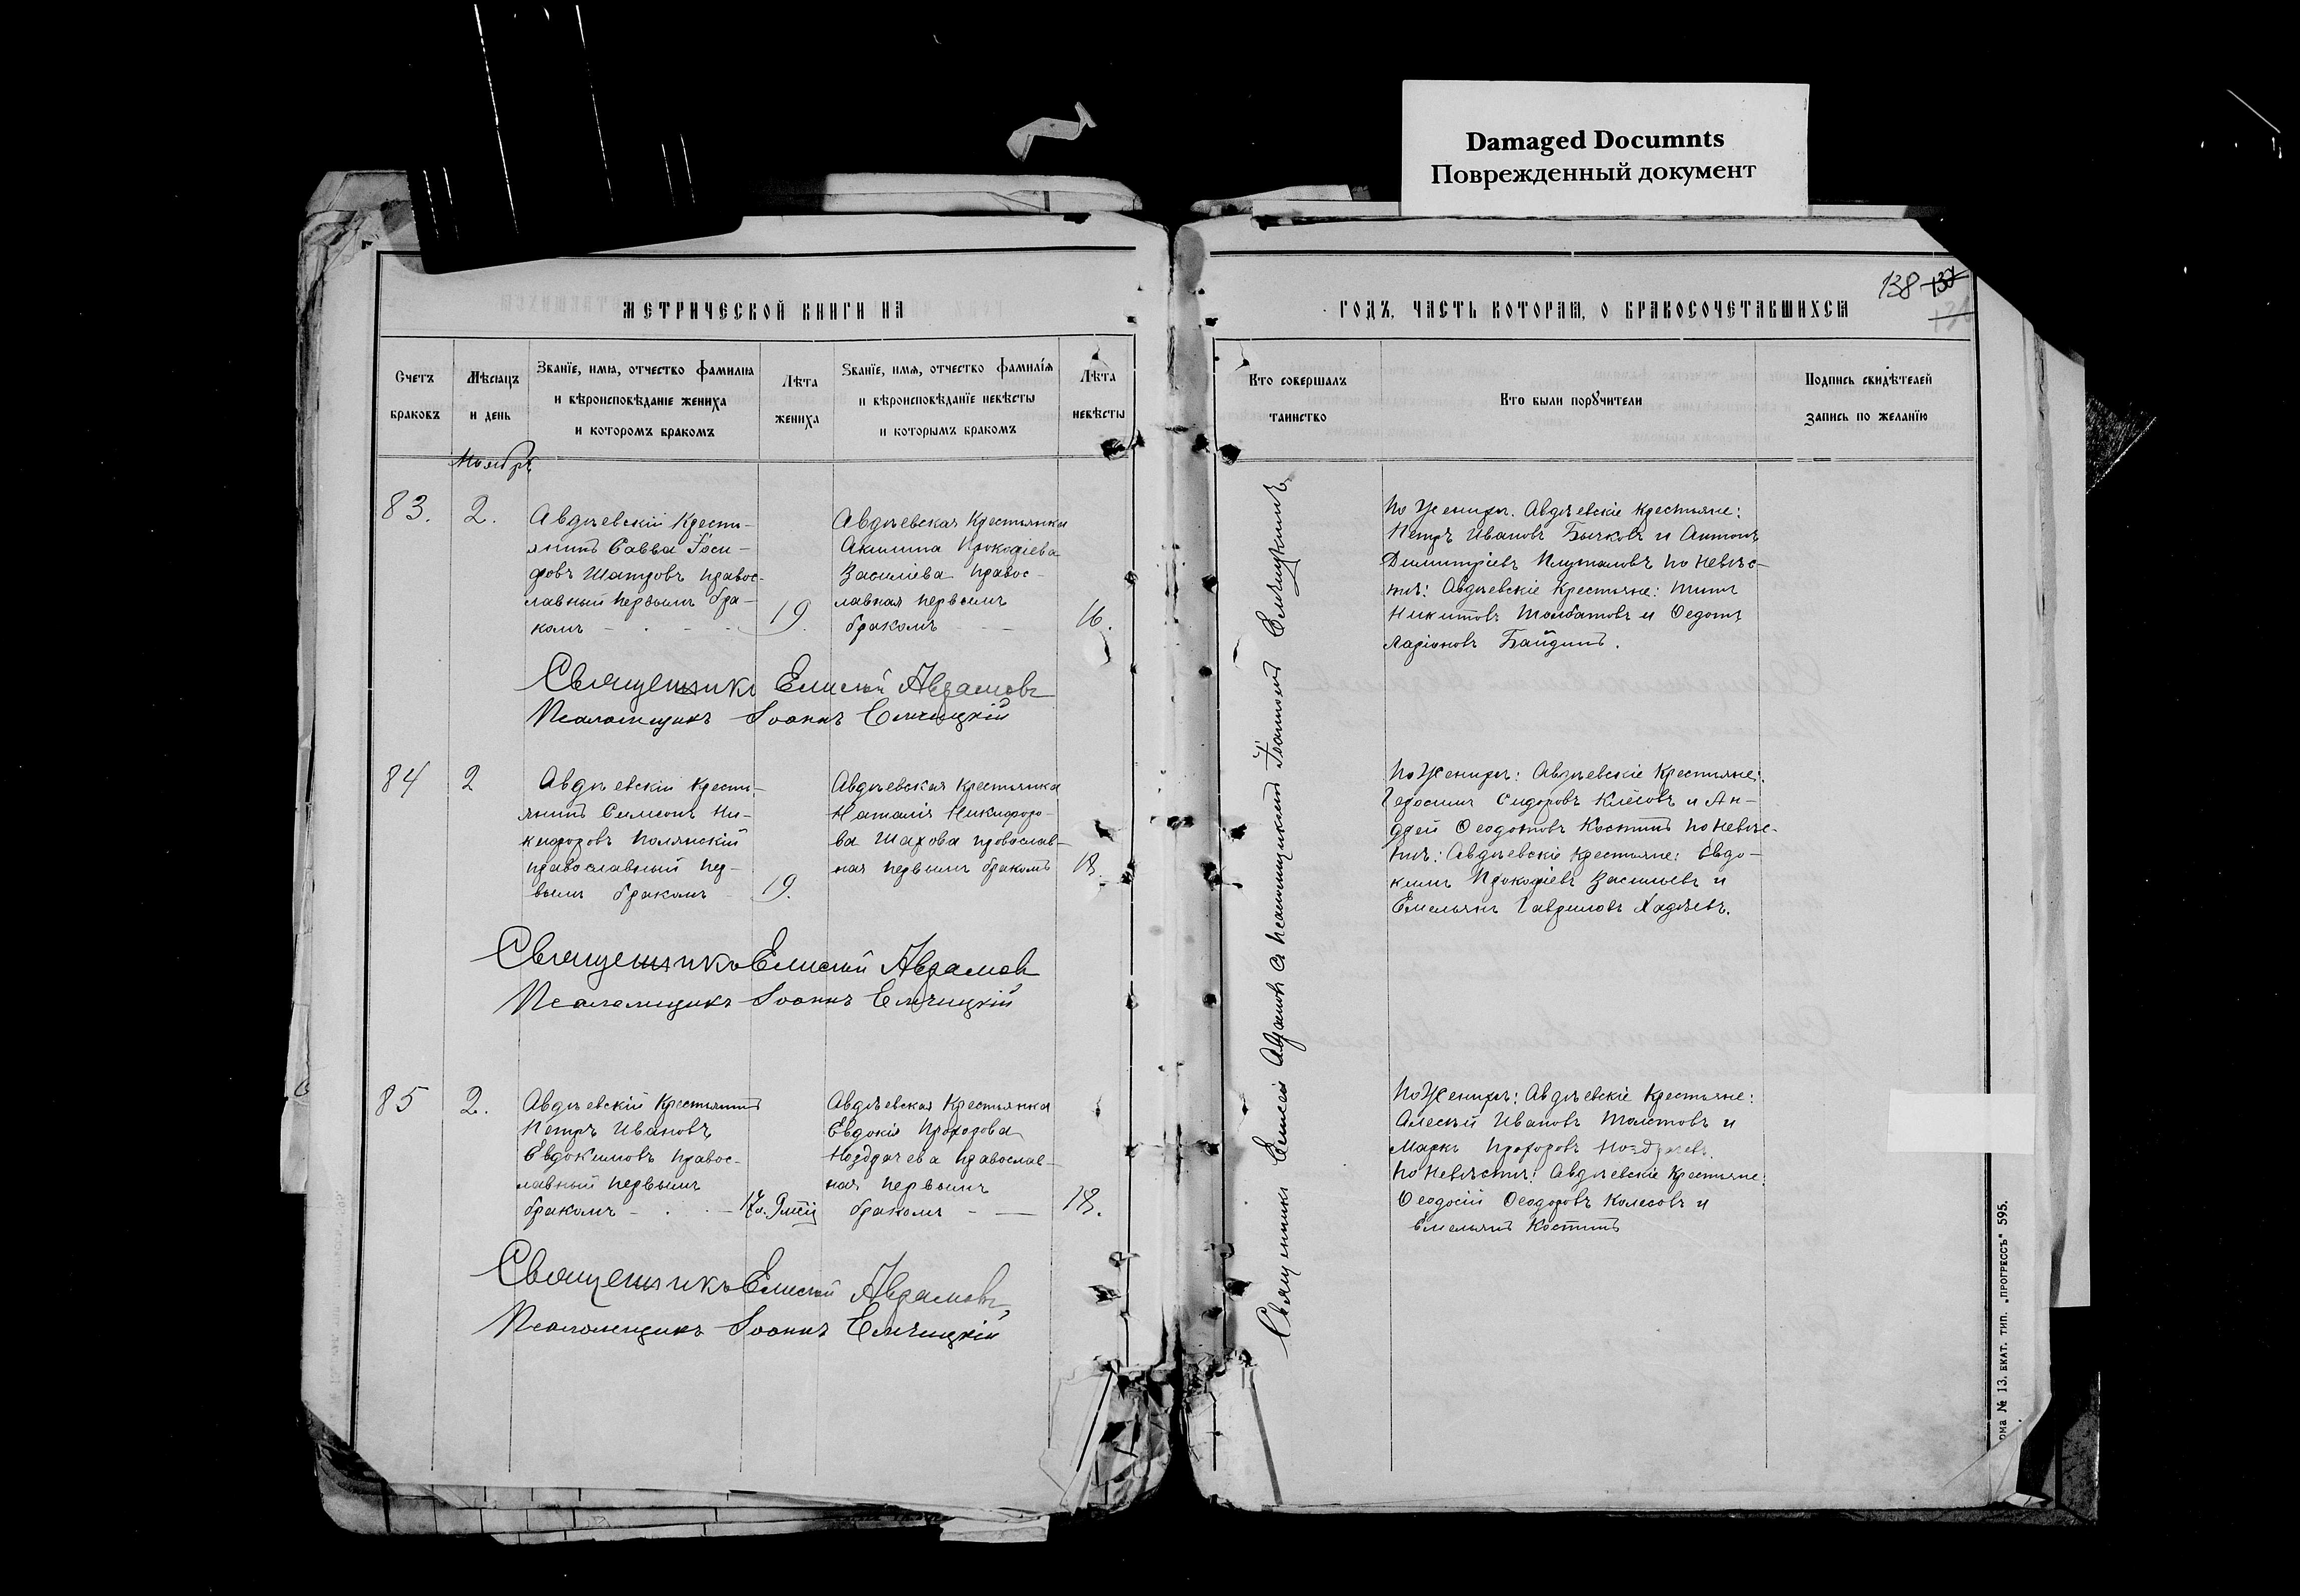 Damaged Documnts
Поврежденный документ
138 137
МЕТРИЧЕСКОЙ КНИГИ НА
ГОДЪ, ЧАСТЬ ВТОРАЯ, О БРАКОСОЧЕТАВШИХСЯ
Счетъ браковъ
Мѣсяцъ и день
Званїе, имя, отчество фамилія
и вѣроисповѣданїе жениха
и которомъ бракомъ
Лѣта жениха
Званїе, имя, отчество фамилїя
и вѣроисповѣданїе невѣсты
и которымъ бракомъ
Лѣта невѣсты
Кто совершалъ таинство
Кто были поручители
Подпись свидѣтелей
запись по желанїю
Ноябрь
83.
2.
Авдѣевскій Кресть-
янинъ Савва Іоси-
фовъ Шатровъ правос-
лавный первымъ бра-
комъ
19.
Авдѣевская Крестьянка
Акилина Прокофіева
Василіева правос-
лавная первымъ
бракомъ
16.
Священникъ Елисей Аврамовъ
Псаломщикъ Іоаннъ Елчицкій
По Женихѣ: Авдѣевскіе Крестьяне:
Петръ Ивановъ Бычковъ и Антонъ
Димитріевъ по невѣс-
тѣ: Авдѣевскіе Крестьяне: Титъ
Никитовъ Толбатовъ и Ѳедотъ
Ларіоновъ Байдинъ.
84
2
Авдѣевскій Кресть-
янинъ Симеонъ Ни-
кифоровъ Полянскій
православный пер-
вымъ бракомъ
19.
Авдѣевская Крестьянка
Наталія Никифоро-
ва Шахова православ-
ная первымъ бракомъ
18.
Священникъ Елисей Аврамовъ
Псаломщикъ Іоаннъ Елчицкій
По Женихѣ: Авдѣевскіе Крестьяне:
Герасимъ Сидоровъ Клёсовъ и Ан-
дрей Ѳеодотовъ Костинъ по невѣс-
тѣ: Авдѣевскіе Крестьяне: Евдо-
кимъ Прокофіевъ Васильевъ и
Емельянъ Гавриловъ Хадѣевъ.
85
2.
Авдѣевскій Крестьянинъ
Петръ Ивановъ
Евдокимовъ правос-
лавный первымъ
бракомъ
Авдѣевская Крестьянка
Евдокія Прохорова
Ноздрачева православ-
ная первымъ
бракомъ
18.
Священникъ Елисей Аврамовъ
Псаломщикъ Іоаннъ Елчицкій
По Женихѣ: Авдѣевскіе Крестьяне:
Алексѣй Ивановъ Толстовъ и
Маркъ Прохоровъ
По невѣстѣ: Авдѣевскіе Крестьяне:
Ѳеодосій Ѳеодоровъ Колесовъ и
Емельянъ Костинъ
Священникъ Елисей Аврамовъ съ псаломщикомъ Іоанномъ Елчицкимъ
№ 13. ЕКАТ. ТИП. „ПРОГРЕССЪ" 595.